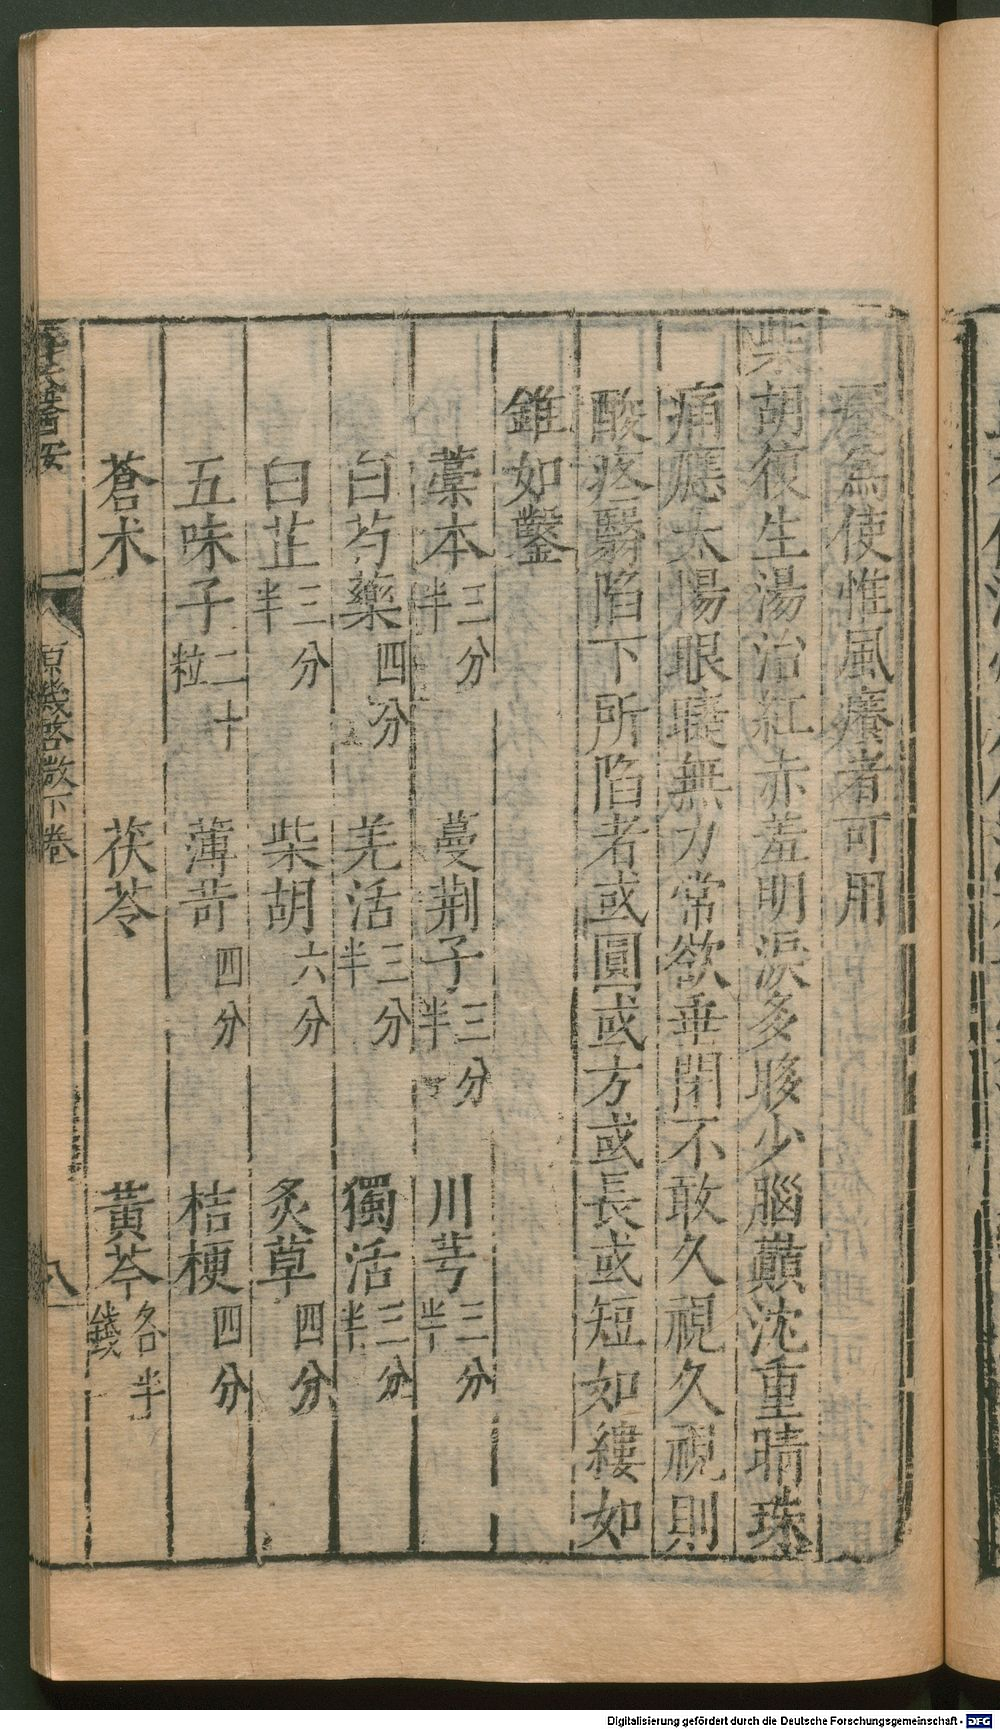 為使惟風癢者可用
柴胡復生湯治紅赤羞明淚多眵少腦巔沈重睛珠
痛應太陽眼睫無力常欲垂閉不敢久視久視則
酸疼翳陷下所陷者或圓或方或長或短如縷如
錐如鑿
藁本三分半 蔓荆子三分半 川芎三分半
白芍藥四分 羌活三分半 獨活三分半
白芷三分半 柴胡六分 炙草四分
五味子二十粒 薄苛四分 桔梗四分
蒼朮 茯苓 黃芩各半錢
醫案 原機啓微下卷 八
Digitalisierung gefördert durch die Deutsche Forschungsgemeinschaft - DFG